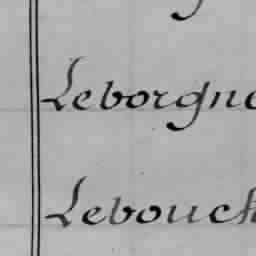 Leborgne
Lebouch